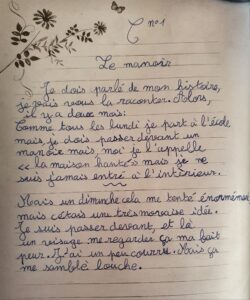 C n°1
Le manoir
Je dois parlé de mon histoire,
je vais vous la raconter. Alors,
il y a deux mois:
Comme tous les lundi je part à l'école
mais je dois passer devant un
manoir mais, moi je l'appelle
<< la maison hantée mais je ne
suis jamais entré à l'intérieur.
Mais un dimanche cela me tenté énormément
mais c'étais une très mauvaise idée.
Je suis passer devant, et là
un visage me regarder ça ma fait
peur. J'ai un peu courru. Mais ça
me semblé louche.